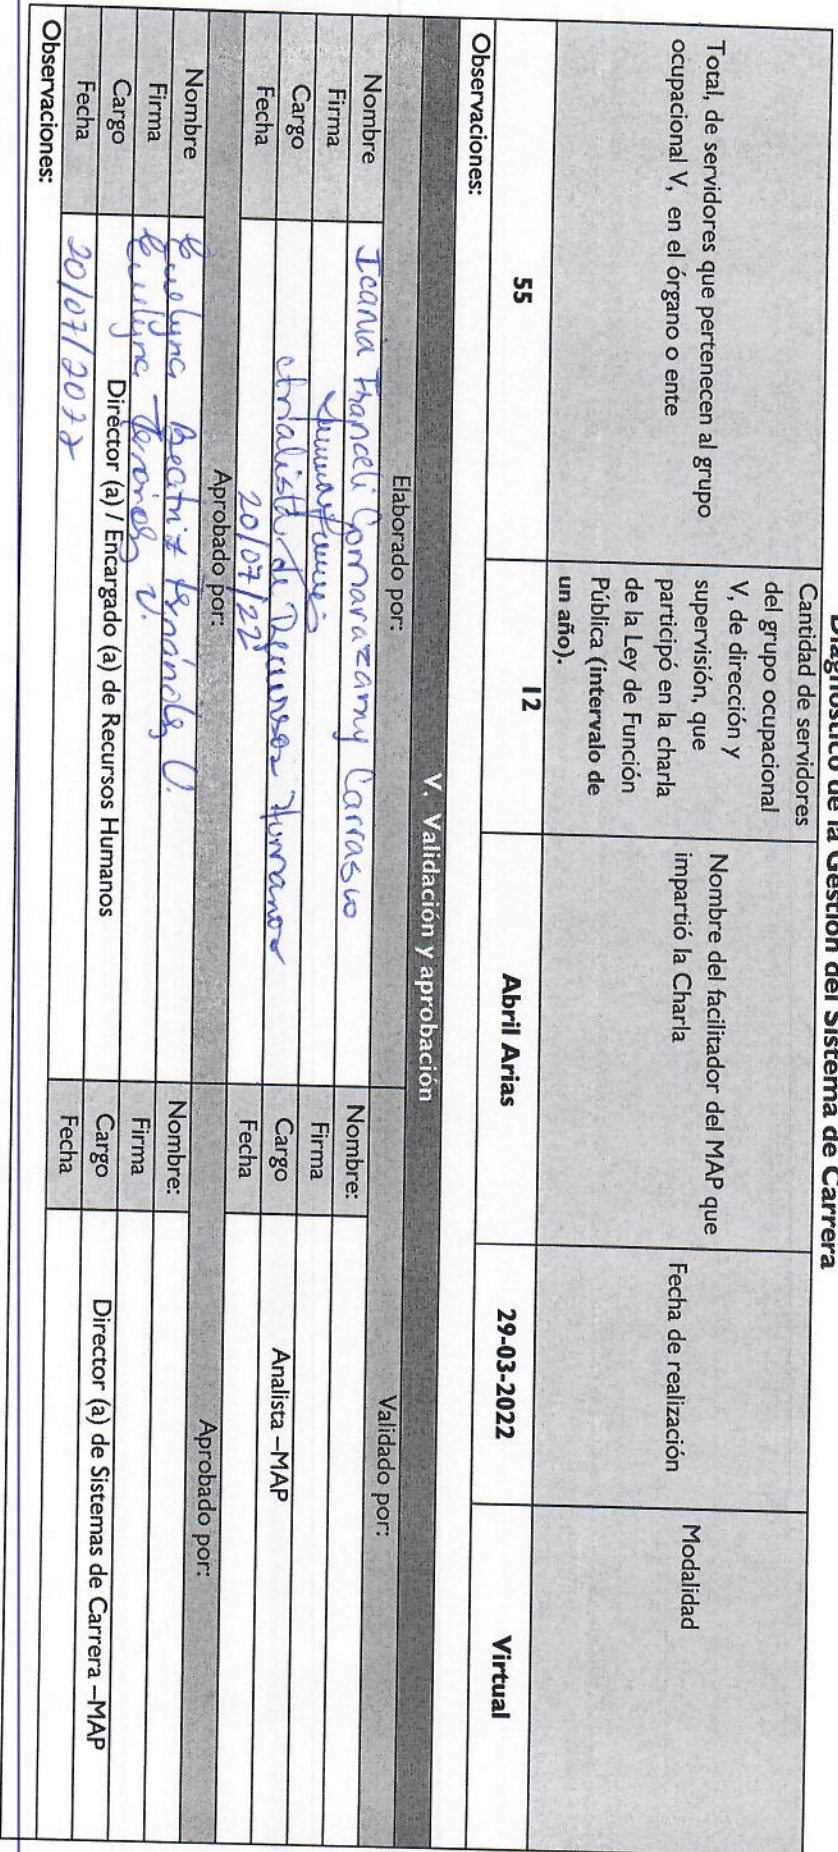 Diagnóstico de la Gestión del Sistema de Carrera
Total, de servidores que pertenecen al grupo
ocupacional V, en el órgano o ente
Cantidad de servidores
del grupo ocupacional
V, de dirección y
supervisión, que
participó en la charla
de la Ley de Función
Pública (intervalo de
un año).
Nombre del facilitador del MAP que
impartió la Charla
Fecha de realización
Modalidad
55
12
Abril Arias
29-03-2022
Virtual
Observaciones:
V. Validación y aprobación
Elaborado por:
Validado por:
Nombre
Carrasco
Nombre:
Firma
Firma
Cargo
de Recursos Humanos
Cargo
Analista –MAP
Fecha
20/07/22
Fecha
Aprobado por:
Aprobado por:
Nombre
Beatriz
Nombre:
Firma
Firma
Cargo
Director (a) / Encargado (a) de Recursos Humanos
Cargo
Director (a) de Sistemas de Carrera –MAP
Fecha
20/07/2022
Fecha
Observaciones: